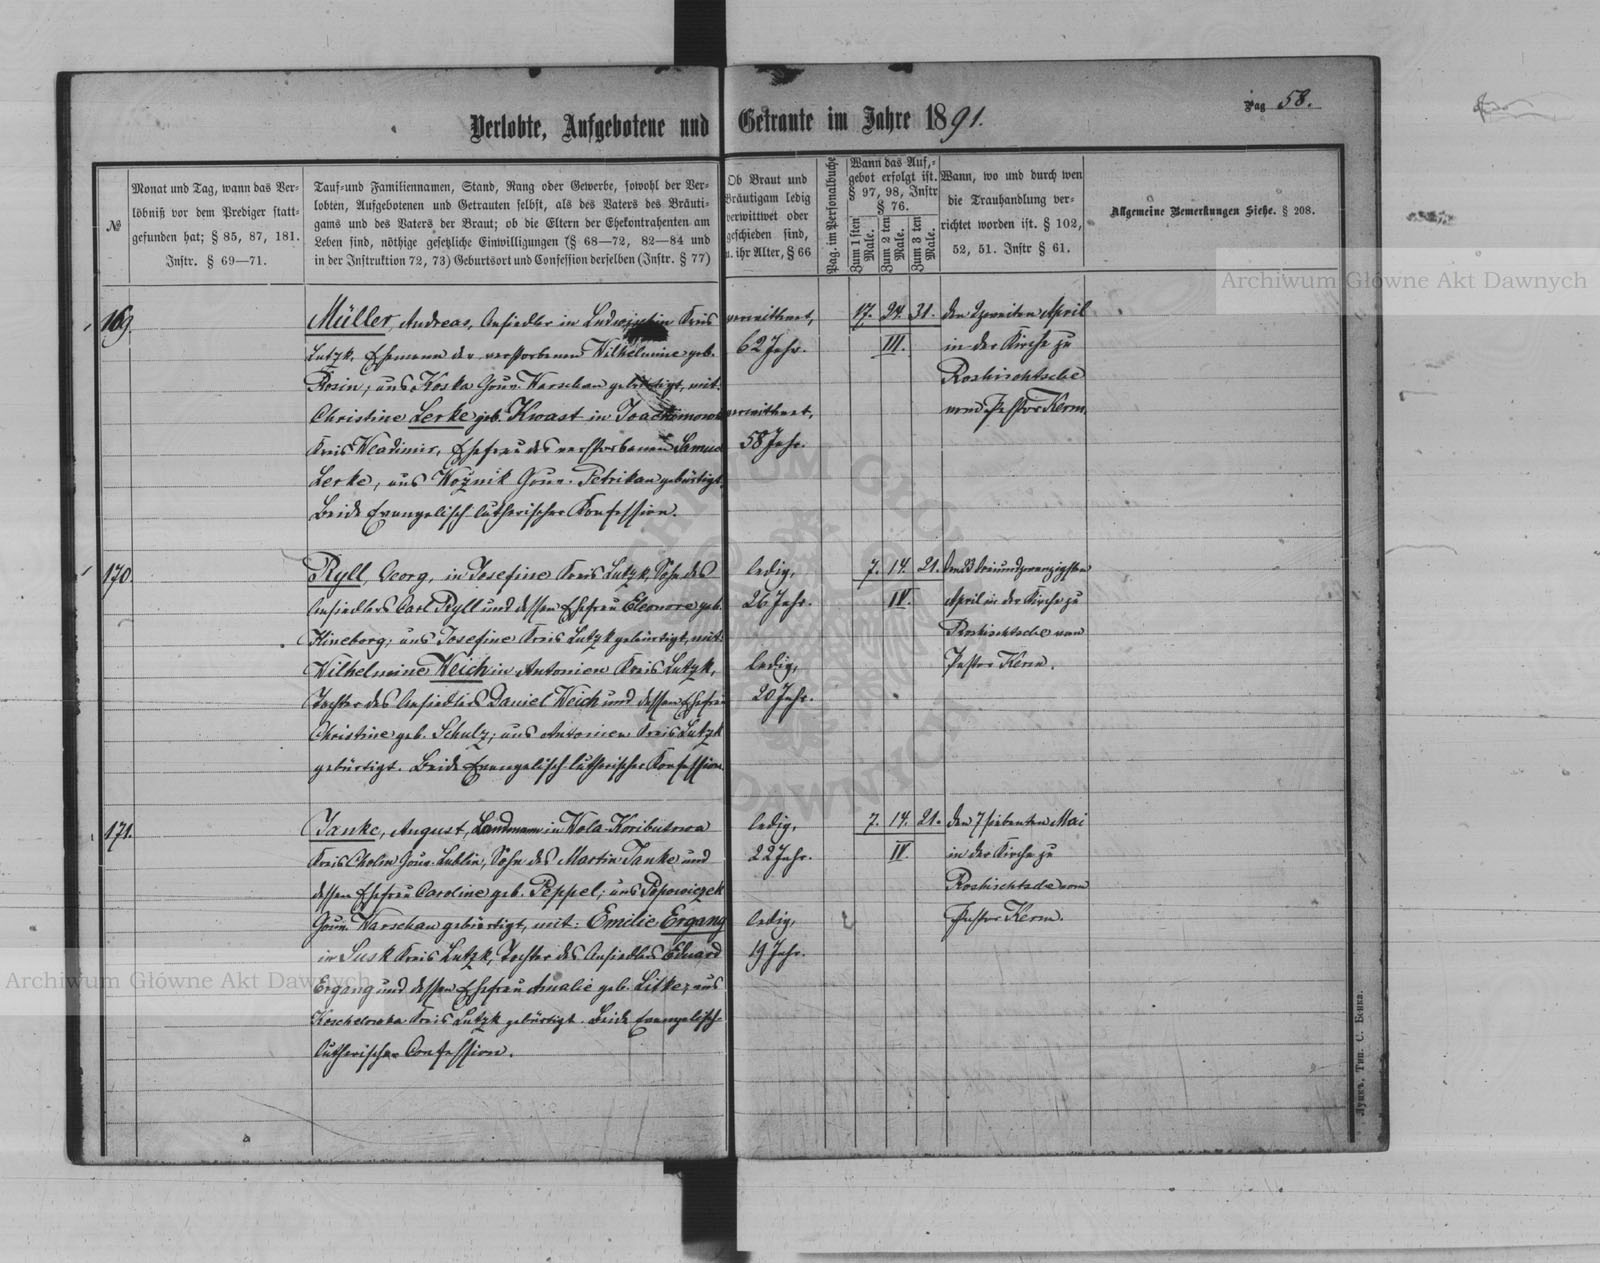 Pag 58.
Verlobte, Aufgebotene und Getraute im Jahre 1891.
№
Monat und Tag, wann das Ver-
löbniß vor dem Prediger statt-
gefunden hat; § 85, 87, 181.
Instr. § 69—71.
Tauf-und Familiennamen, Stand, Rang oder Gewerbe, sowohl der Ver-
lobten, Aufgebotenen und Getrauten selbst, als des Vaters des Bräuti-
gams und des Vaters der Braut; ob die Eltern der Ehekontrahenten am
Leben sind, nöthige gesetzliche Einwilligungen (§ 68—72, 82—84 und
in der Instruktion 72, 73) Geburtsort und Confession derselben (Instr. § 77)
Ob Braut und
Bräutigam ledig
verwittwet oder
geschieden sind,
u. ihr Alter, § 66
Pag. im Personalbuche
Wann das Auf-
gebot erfolgt ist.
§ 97, 98, Instr
§ 76.
Zum 1sten Male.
Zum 2 ten Male.
Zum 3 ten Male.
Wann, wo und durch wen
die Trauhandlung ver-
richtet worden ist. § 102,
52, 51. Instr § 61.
Allgemeine Bemerkungen Siehe. § 208.
169.
Müller, Andreas, Ansiedler in Kreis
Lutzk, Ehemann der verstorbenen Wilhelmine geb.
Rosin; aus Koska Gouv. Warschau gebürtigt, mit
Christine Lerke geb. Kwast in Joachimowka
Kreis Wladimir, Ehefrau des verstorbenen Samuel
Lerke, aus Woznik Gouv. Petrikau gebürtigt.
Beide Evangelisch-lutherischer Konfession.
verwittwet,
62 Jahr.
verwittwet,
58 Jahr.
17. 24. 31.
III.
den 2 zweiten April
in der Kirche zu
Roshischtsche
vom Pastor Kerm.
170.
Ryll, Georg, in Josefine Kreis Lutzk, Sohn des
Ansiedlers Carl Ryll und dessen Ehefrau Eleonore geb.
Kineborg; aus Josefine Kreis Lutzk gebürtigt, mit:
Wilhelmine Weich in Antonien Kreis Lutzk,
Tochter des Ansiedlers Daniel Weich und dessen Ehefrau
Christine geb. Schulz; aus Antonien Kreis Lutzk
gebürtigt. Beide Evangelisch-lutherischer Konfession.
ledig,
26 Jahr.
ledig,
20 Jahr.
7. 14. 21.
IV.
den 23 dreiundzwanzigsten
April in der Kirche zu
Roshischtsche vom
Pastor Kerm.
171.
Janke, August, Landmann in Wola-Koributowa
Kreis Cholm Gouv. Lublin, Sohn des Martin Janke und
dessen Ehefrau Caroline geb. Peppel; aus Popowiczek
Gouv. Warschau gebürtigt, mit: Emilie Ergang
in Susk Kreis Lutzk, Tochter des Ansiedlers Eduard
Ergang und dessen Ehefrau Amalie geb. Litke; aus
Koschelowka Kreis Lutzk gebürtigt. Beide Evangelisch-
lutherischer Confession.
ledig,
22 Jahr.
ledig,
19 Jahr.
7. 14. 21.
IV.
den 7 siebenten Mai
in der Kirche zu
Roshischtsche vom
Pastor Kerm.
Луцкъ, Тип. С. Бонка.
Archiwum Główne Akt Dawnych
Archiwum Główne Akt Dawnych